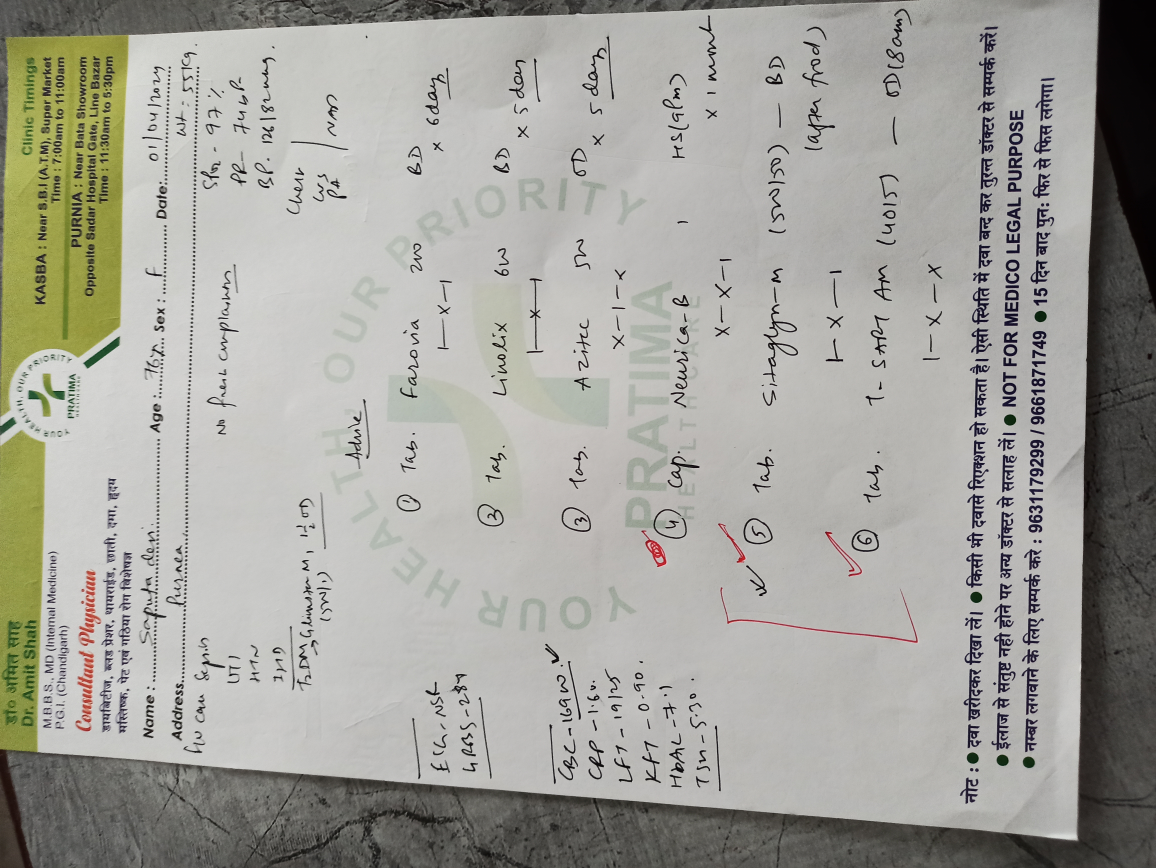 डा० अमित साह
Dr. Amit Shah
M.B.B.S., MD (Internal Medicine)
P.G.I. (Chandigarh)
Consultant Physician
डायबिटीज, ब्लड प्रेशर, थायराईड, छाती, दमा, हृदय
मस्तिष्क, पेट एवं गठिया रोग विशेषज्ञ
YOUR HEALTH, OUR PRIORITY
PRATIMA
Clinic Timings
KASBA : Near S.B.I (A.T.M), Super Market
Time : 7:00am to 11:00am
PURNIA : Near Bata Showroom
Opposite Sadar Hospital Gate, Line Bazar
Time : 11:30am to 5:30pm
Name : Saputa devi Age : 76y Sex : F Date: 01/04/2024
Address Purnea Wt: 55kg.
UTI
HTN
IHD
T2DM
No fresh complain
SPO2 - 97%
PR - 74bpm
BP. 126/82mmhg
Chest
CVS
PA
NAD
Advice
ECG, NSR
GRBS - 289
CBC - 16900
CRP - 1.60.
LFT - 19/25
KFT - 0.90.
HbA1c - 7.1
TSH - 5.30.
① Tab. Farovia 200 BD
1-x-1 x 6day
② Tab. Linolix 600 BD
1-x-1 x 5day
③ Tab. Azitec 500 OD
x-1-x x 5day
④ Cap. Neurica-B 1 HS (9pm)
x-x-1 x 1 month
⑤ Tab. Sitaglyn-m (50/500) - BD
1-x-1 (after food)
⑥ Tab. T-SART AM (40/5) - OD (8am)
1-x-x
YOUR HEALTH OUR PRIORITY
PRATIMA
HEALTH CARE
नोट : ● दवा खरीदकर दिखा लें। ● किसी भी दवासे रिएक्शन हो सकता है। ऐसी स्थिति में दवा बन्द कर तुरन्त डॉक्टर से सम्पर्क करें।
● ईलाज से संतुष्ट नही होने पर अन्य डॉक्टर से सलाह लें। ● NOT FOR MEDICO LEGAL PURPOSE
● नम्बर लगवाने के लिए सम्पर्क करे : 9631179299 / 9661871749 ● 15 दिन बाद पुनः फिर से फिस लगेगा।